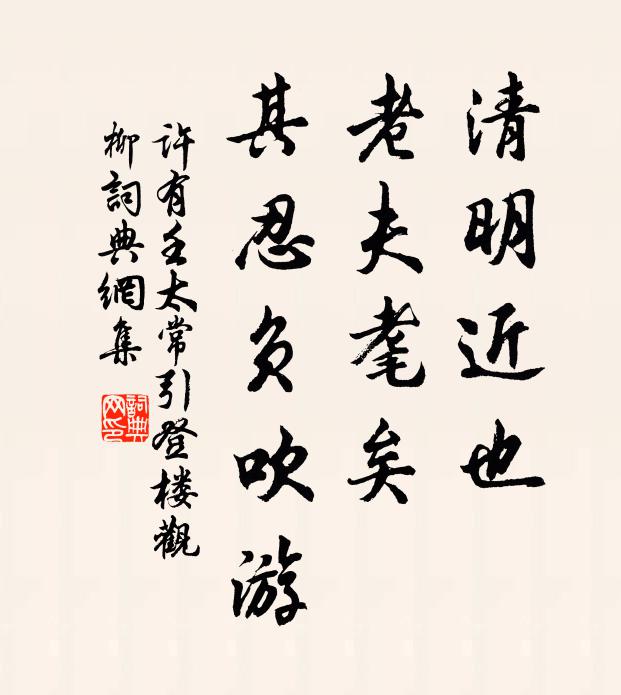 清明近也
老夫耄矣
其忍负吹游
许有壬太常引登楼觀
柳詞典網集
詞典网印